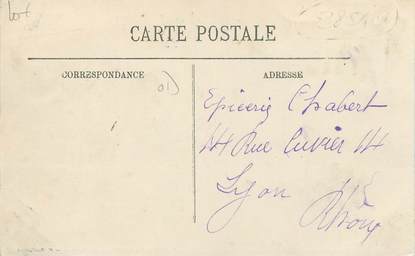 Lot
CARTE POSTALE
CORRESPONDANCE
ADRESSE
Epicerie Chabert
44 Rue Cuvier 44
Lyon
Rhône